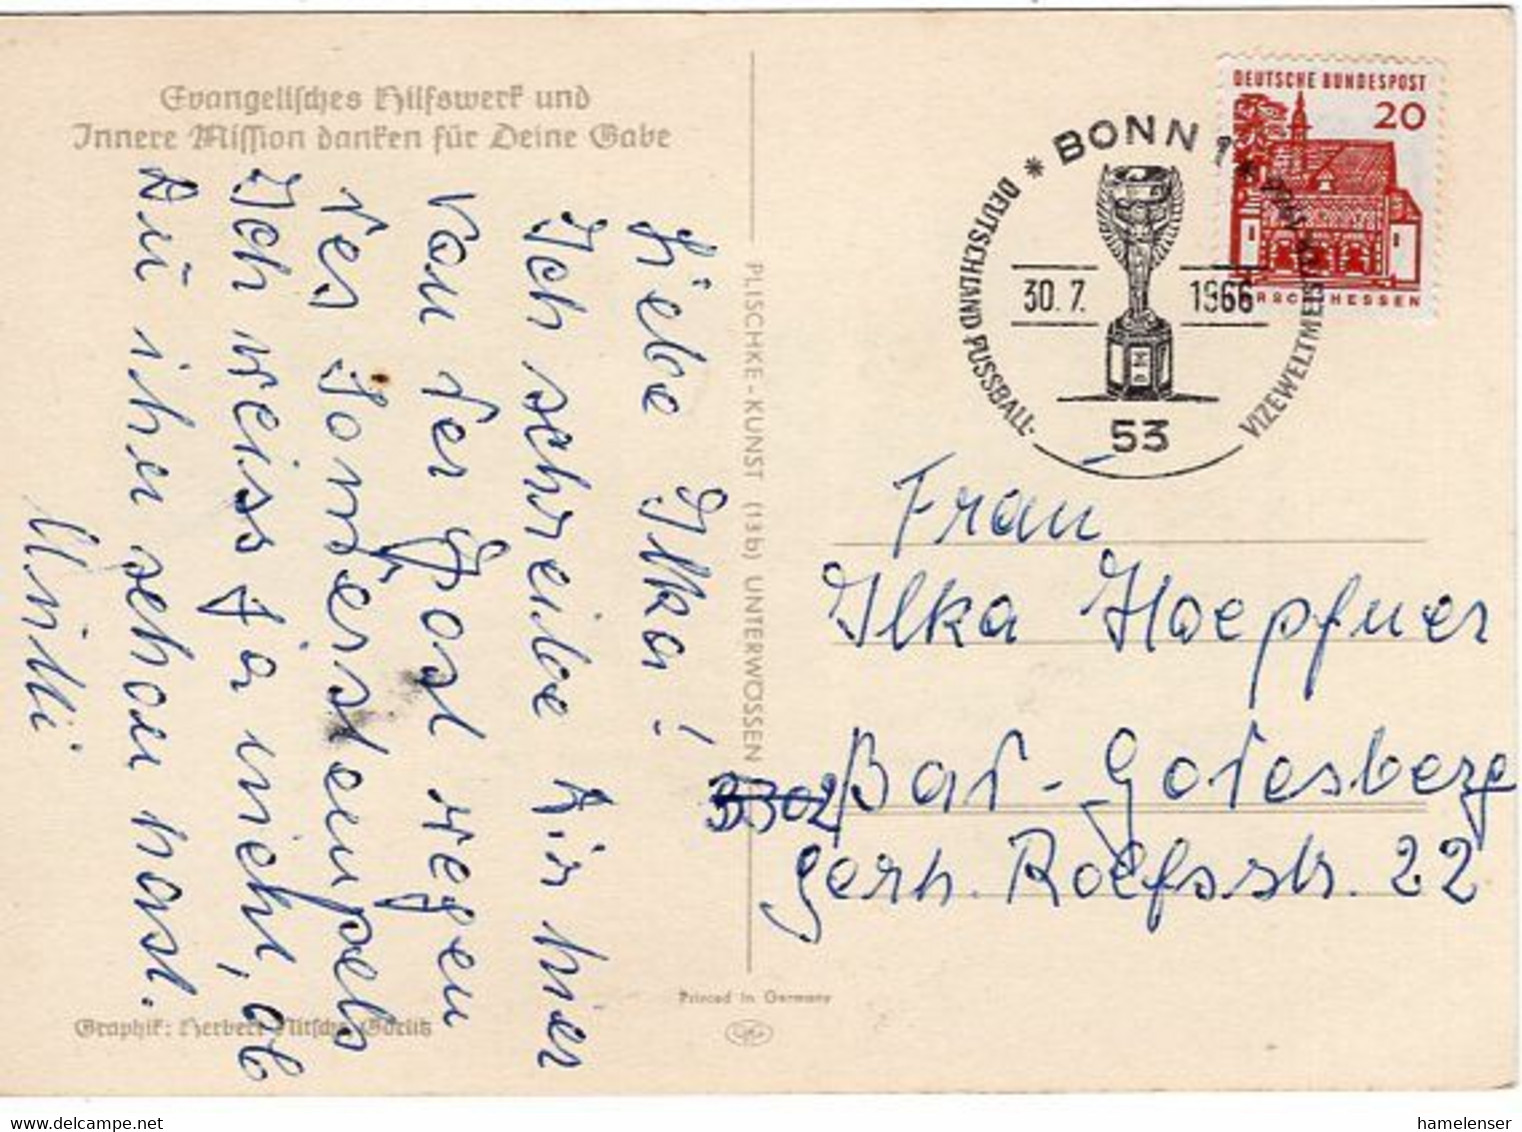 Evangelisches Hilfswerk und
Innere Mission danken für Deine Gabe
Liebe Ilka!
Ich schreibe Dir hier
von der Post wegen
des Sonderstempels
Ich weiss ja nicht, ob
Du ihn schon hast.
Graphik: Herbert Nitsche, Görlitz
PLISCHKE-KUNST (13b) UNTERWÖSSEN
Printed in Germany
DEUTSCHE BUNDESPOST
20
LORSCH/HESSEN
* BONN 1 *
DEUTSCHLAND FUSSBALL-
VIZEWELTMEISTER 1966
30.7. 1966
53
Frau
Ilka Hoepfner
5302 Bad-Godesberg
Gerh. Rolfsstr. 22
hamelenser